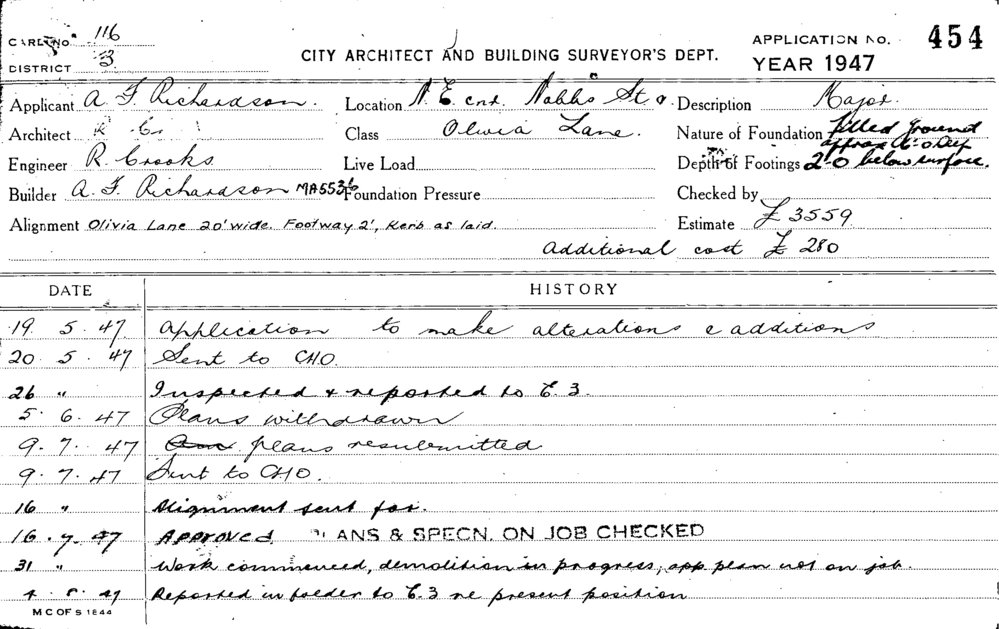 CARD NO. 116
DISTRICT 3
CITY ARCHITECT AND BUILDING SURVEYOR'S DEPT.
APPLICATION NO. 454
YEAR 1947
Applicant A. F. Richardson. Location N. E. cnr. Nobbs St & Description Major.
Architect Class Olivia Lane. Nature of Foundation filled ground
approx deep
Engineer R. Crooks Live Load Depth of Footings 2'-0 below surface.
Builder A. F. Richardson MA5536 Foundation Pressure Checked by
Alignment Olivia Lane 20' wide. Footway 2', Kerb as laid. Estimate £ 3559
Additional cost £ 280
DATE HISTORY
19. 5. 47 Application to make alterations & additions
20. 5. 47 Sent to CHO.
26 " Inspected & reported to E.3.
5. 6. 47 Plans withdrawn
9. 7. 47 plans resubmitted
9. 7. 47 Sent to CHO.
16 " Alignment sent for.
16. 7. 47 Approved. PLANS & SPECN. ON JOB CHECKED
31 " Work commenced, demolition in progress, app. plan not on job.
Reported in folder to E.3 re present position
M C OF S 1844